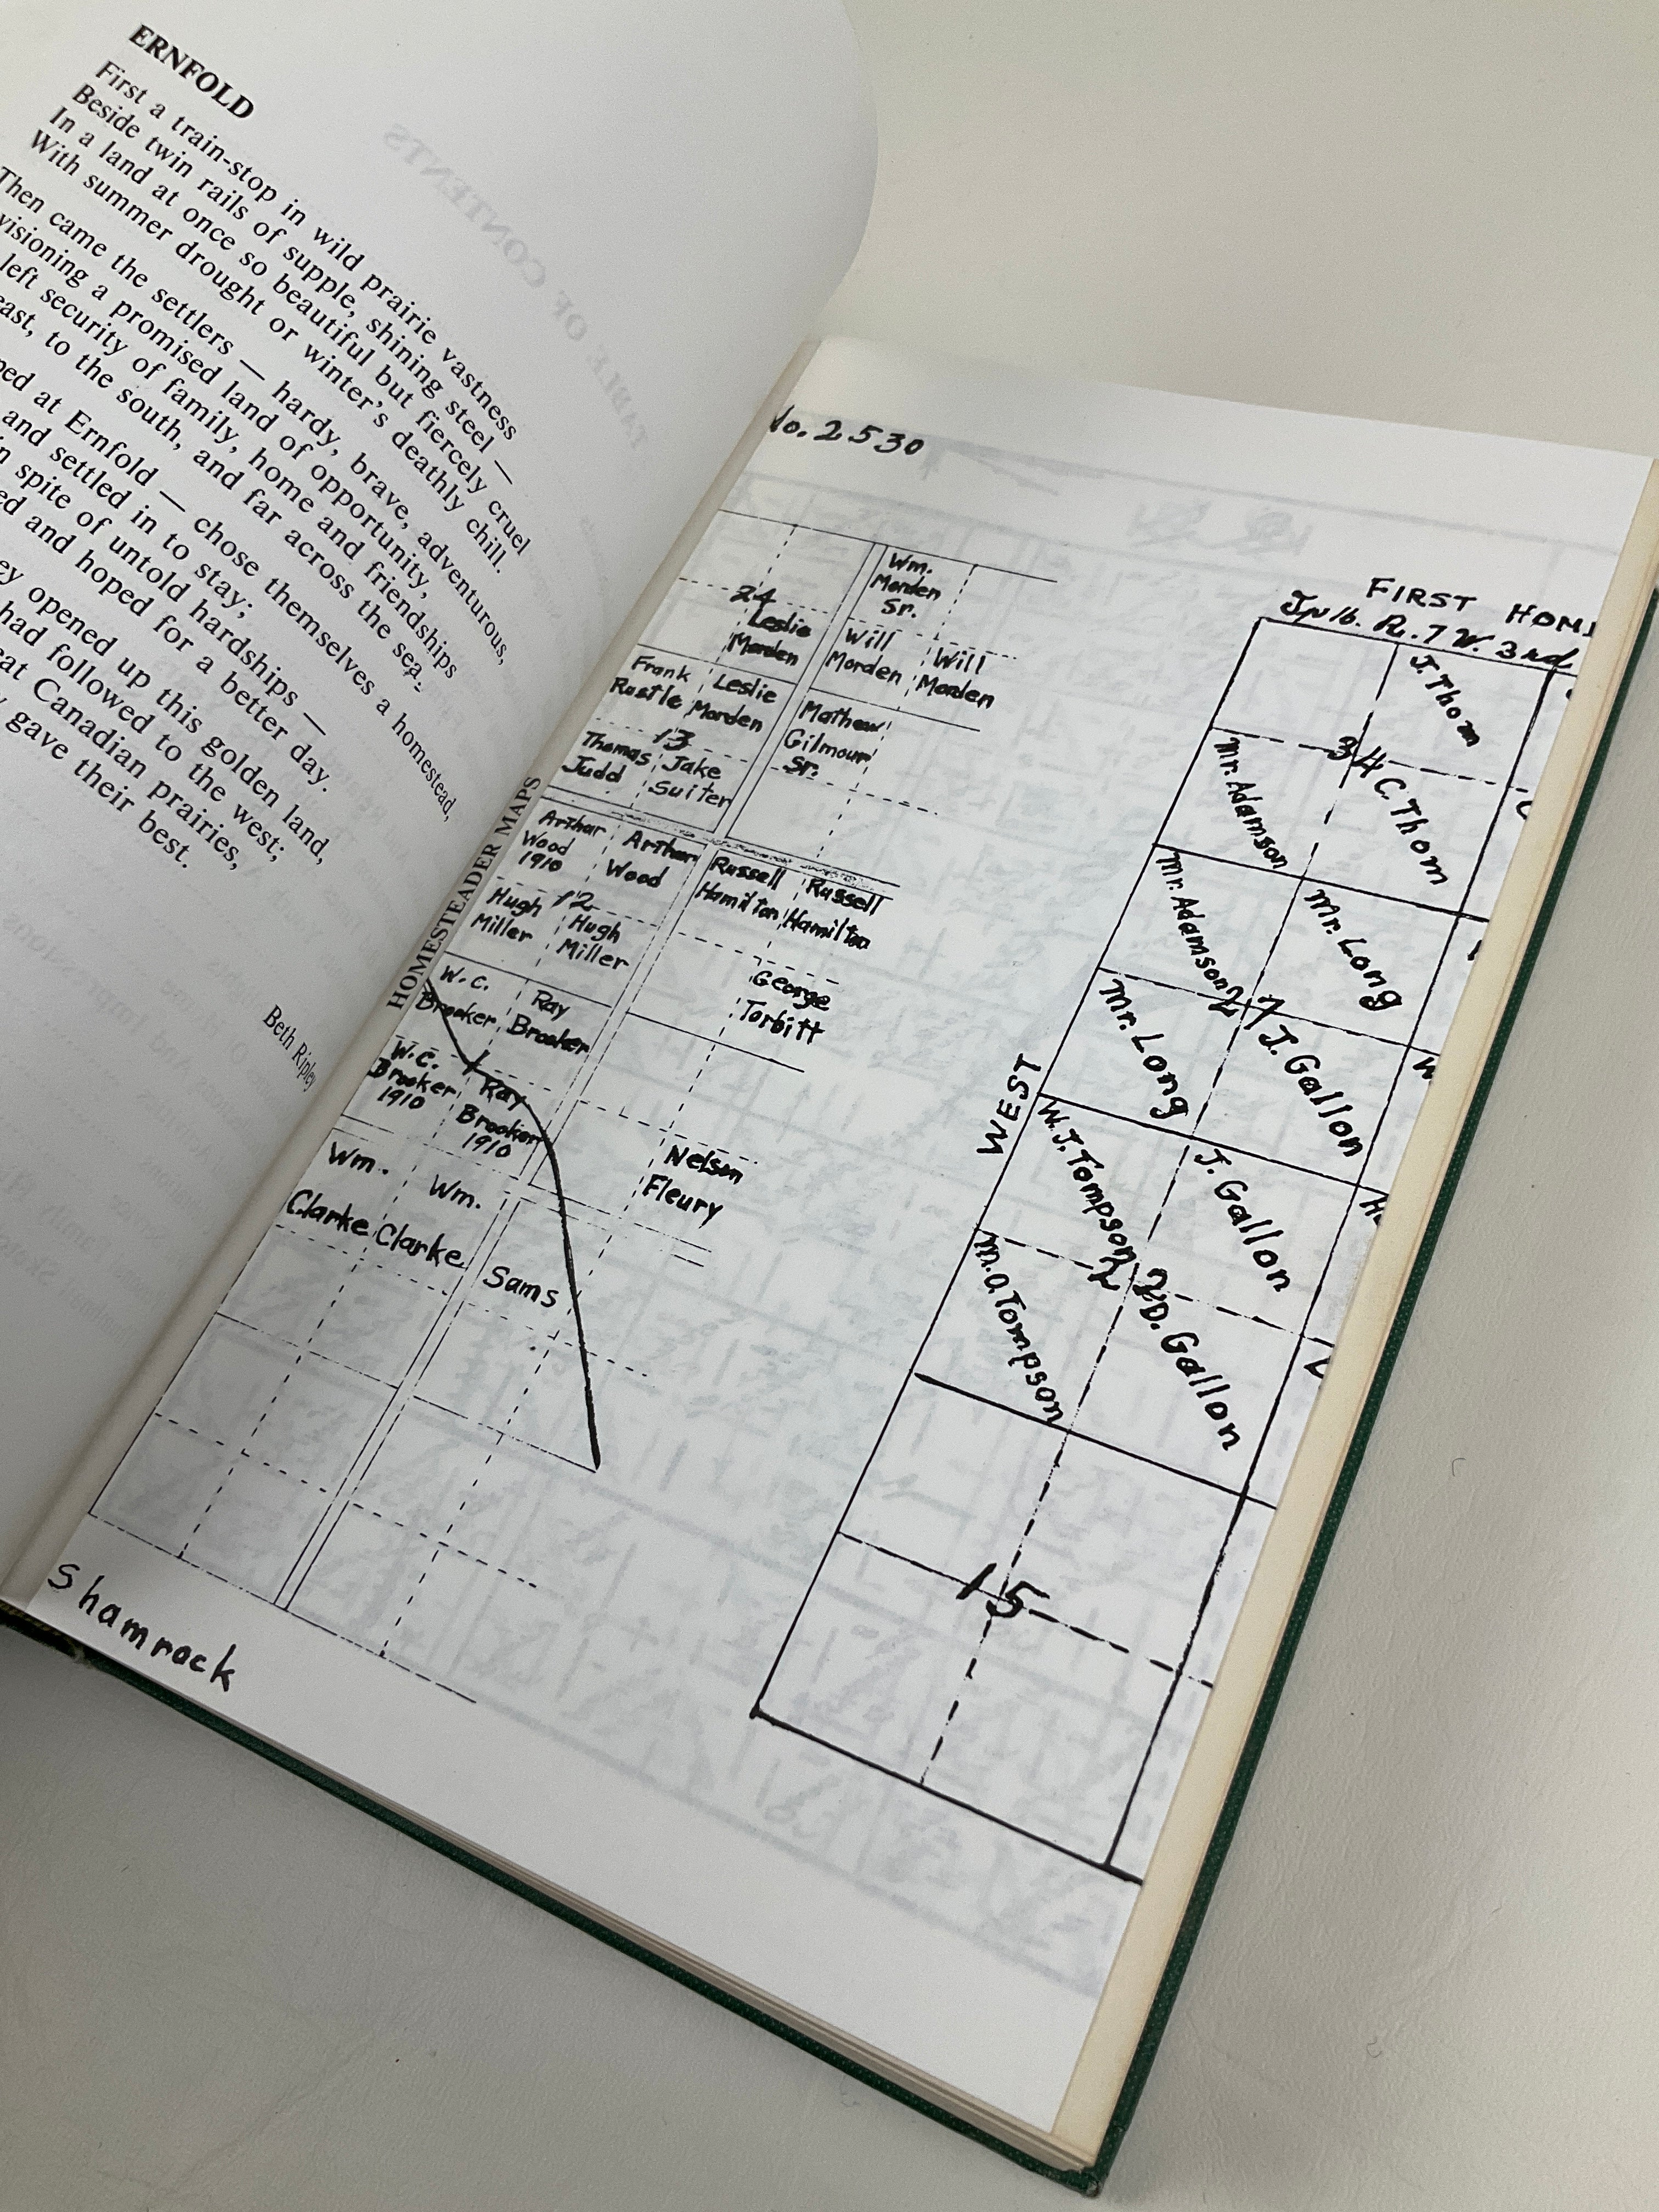 ERNFOLD
First a train-stop in wild prairie vastness
Beside twin rails of supple, shining steel —
In a land at once so beautiful but fiercely cruel
With summer drought or winter's deathly chill.
Then came the settlers — hardy, brave, adventurous,
visioning a promised land of opportunity,
left security of family, home and friendships
east, to the south, and far across the sea.
at Ernfold — chose themselves a homestead,
and settled in to stay;
spite of untold hardships —
and hoped for a better day.
opened up this golden land,
had followed to the west;
Canadian prairies,
gave their best.
Beth Ripley
TABLE OF CONTENTS
HOMESTEADER MAPS
No. 2530
24
Leslie
Morden
Wm.
Morden
Sr.
Will
Morden
Will
Morden
Frank
Rustle
Leslie
Morden
13
Thomas
Judd
Jake
Suiter
Mathew
Gilmour
Sr.
Arthur
Wood
1910
Arthur
Wood
12
Hugh
Miller
Hugh
Miller
Russell
Hamilton
Russell
Hamilton
George
Torbitt
W.C.
Brooker
Ray
Brooker
1
W.C.
Brooker
1910
Ray
Brooker
1910
Nelson
Fleury
Wm.
Clarke
Wm.
Clarke
Sams
Shamrock
FIRST
Tp 16. R. 7 W. 3rd
WEST
J. Thom
34
Mr. Adamson
C. Thom
Mr. Adamson
Mr. Long
27
Mr. Long
J. Gallon
W.J. Tompson
J. Gallon
22
M.A Tompson
D. Gallon
15